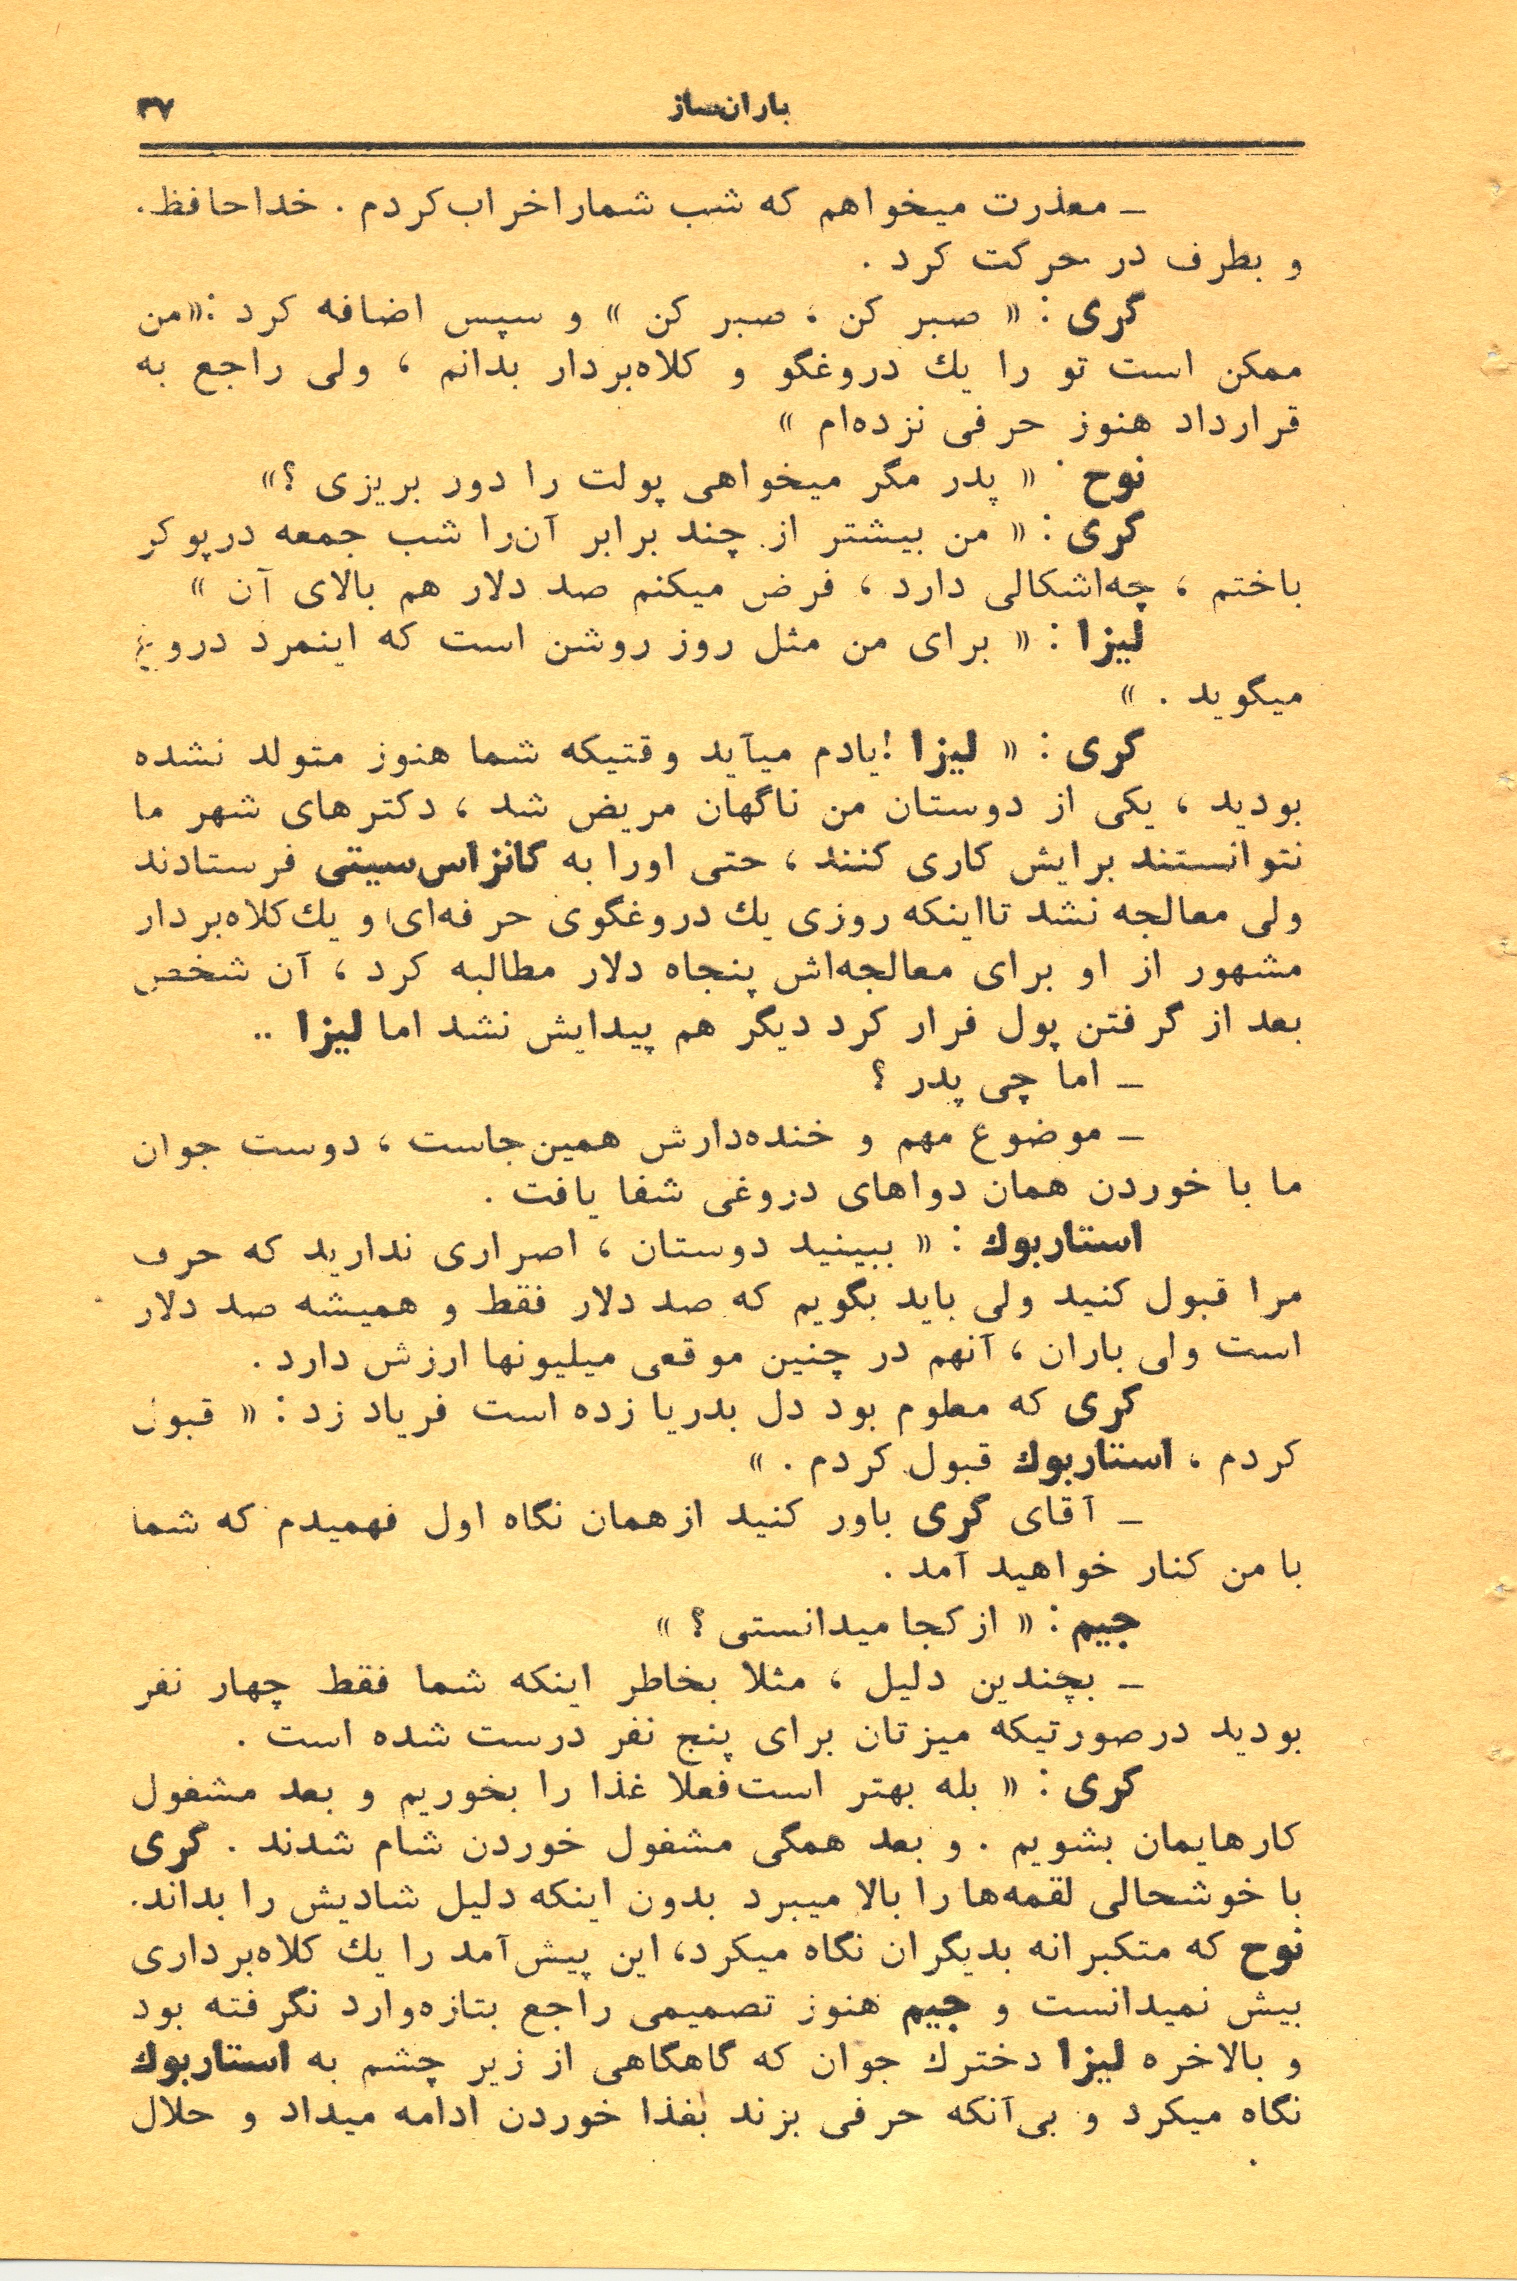 باران‌ساز ۳۷
ـ معذرت میخواهم که شب شمارا خراب کردم . خداحافظ.
و بطرف در حرکت کرد .
کری : « صبر کن ، صبر کن » و سپس اضافه کرد :«من
ممکن است تو را یك دروغگو و کلاه‌بردار بدانم ، ولی راجع به
قرارداد هنوز حرفی نزده‌ام »
نوح : « پدر مگر میخواهی پولت را دور بریزی ؟»
کری : « من بیشتر از چند برابر آن‌را شب جمعه در پوکر
باختم ، چه‌اشکالی دارد ، فرض میکنم صد دلار هم بالای آن »
لیزا : « برای من مثل روز روشن است که اینمرد دروغ
میگوید . »
کری : « لیزا !یادم میآید وقتیکه شما هنوز متولد نشده
بودید ، یکی از دوستان من ناگهان مریض شد ، دکترهای شهر ما
نتوانستند برایش کاری کنند ، حتی اورا به کانزاس‌سیتی فرستادند
ولی معالجه نشد تااینکه روزی یك دروغگوی حرفه‌ای و یك کلاه‌بردار
مشهور از او برای معالجه‌اش پنجاه دلار مطالبه کرد ، آن شخص
بعد از گرفتن پول فرار کرد دیگر هم پیدایش نشد اما لیزا ..
ـ اما چی پدر ؟
ـ موضوع مهم و خنده‌دارش همین‌جاست ، دوست جوان
ما با خوردن همان دواهای دروغی شفا یافت .
استاربوك : « ببینید دوستان ، اصراری ندارید که حرف
مرا قبول کنید ولی باید بگویم که صد دلار فقط و همیشه صد دلار
است ولی باران ، آنهم در چنین موقعی میلیونها ارزش دارد .
کری که معلوم بود دل بدریا زده است فریاد زد : « قبول
کردم ، استاربوك قبول کردم . »
ـ آقای کری باور کنید از همان نگاه اول فهمیدم که شما
با من کنار خواهید آمد .
جیم : « از کجا میدانستی ؟ »
ـ بچندین دلیل ، مثلا بخاطر اینکه شما فقط چهار نفر
بودید درصورتیکه میزتان برای پنج نفر درست شده است .
کری : « بله بهتر است فعلا غذا را بخوریم و بعد مشغول
کارهایمان بشویم . و بعد همگی مشغول خوردن شام شدند . کری
با خوشحالی لقمه‌ها را بالا میبرد بدون اینکه دلیل شادیش را بداند.
نوح که متکبرانه بدیگران نگاه میکرد، این پیش‌آمد را یك کلاه‌برداری
بیش نمیدانست و جیم هنوز تصمیمی راجع بتازه‌وارد نگرفته بود
و بالاخره لیزا دخترك جوان که گاهگاهی از زیر چشم به استاربوك
نگاه میکرد و بی‌آنکه حرفی بزند بغذا خوردن ادامه میداد و حلال